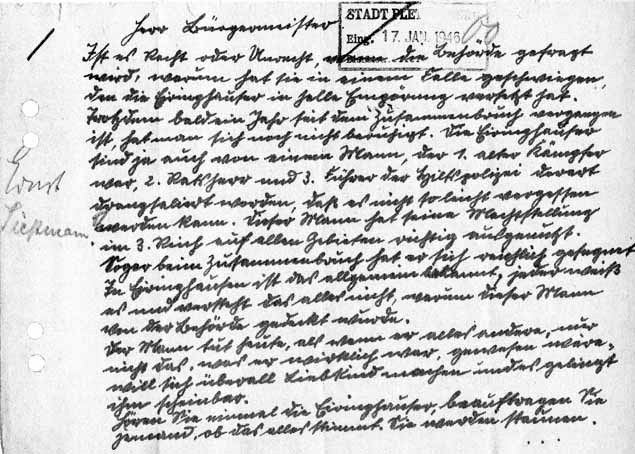 Herr Bürgermeister
STADT PLE
Eing. 17. JAN. 1946
Ist es Recht oder Unrecht, warum die Behörde gefragt
wird, warum hat sie in einem Falle geschwiegen,
den die Eiringhauser in helle Empörung versetzt hat.
Trotzdem bald ein Jahr seit dem Zusammenbruch vergangen
ist, hat man sich noch nicht beruhigt. Die Eiringhauser
sind ja auch von einem Mann, der 1. alter Kämpfer
war, 2. Ratsherr und 3. Führer der Hilfspolizei derart
drangsaliert worden, daß es nicht so leicht vergessen
werden kann. Dieser Mann hat seine Machtstellung
im 3. Reich auf allen Gebieten richtig ausgenutzt.
Sogar beim Zusammenbruch hat er sich reichlich gesegnet
In Eiringhausen ist das allgemein bekannt, jeder weiß
es und versteht das alles nicht, warum dieser Mann
von der Behörde gedeckt wurde.
Der Mann tut heute, als wenn er alles andere, nur
nicht das, was er wirklich war, gewesen wäre.
will sich überall Liebkind machen und es gelingt
ihm scheinbar.
Hören Sie einmal die Eiringhauser, beauftragen Sie
jemand, ob das alles stimmt. Sie werden staunen.
....
Ernst